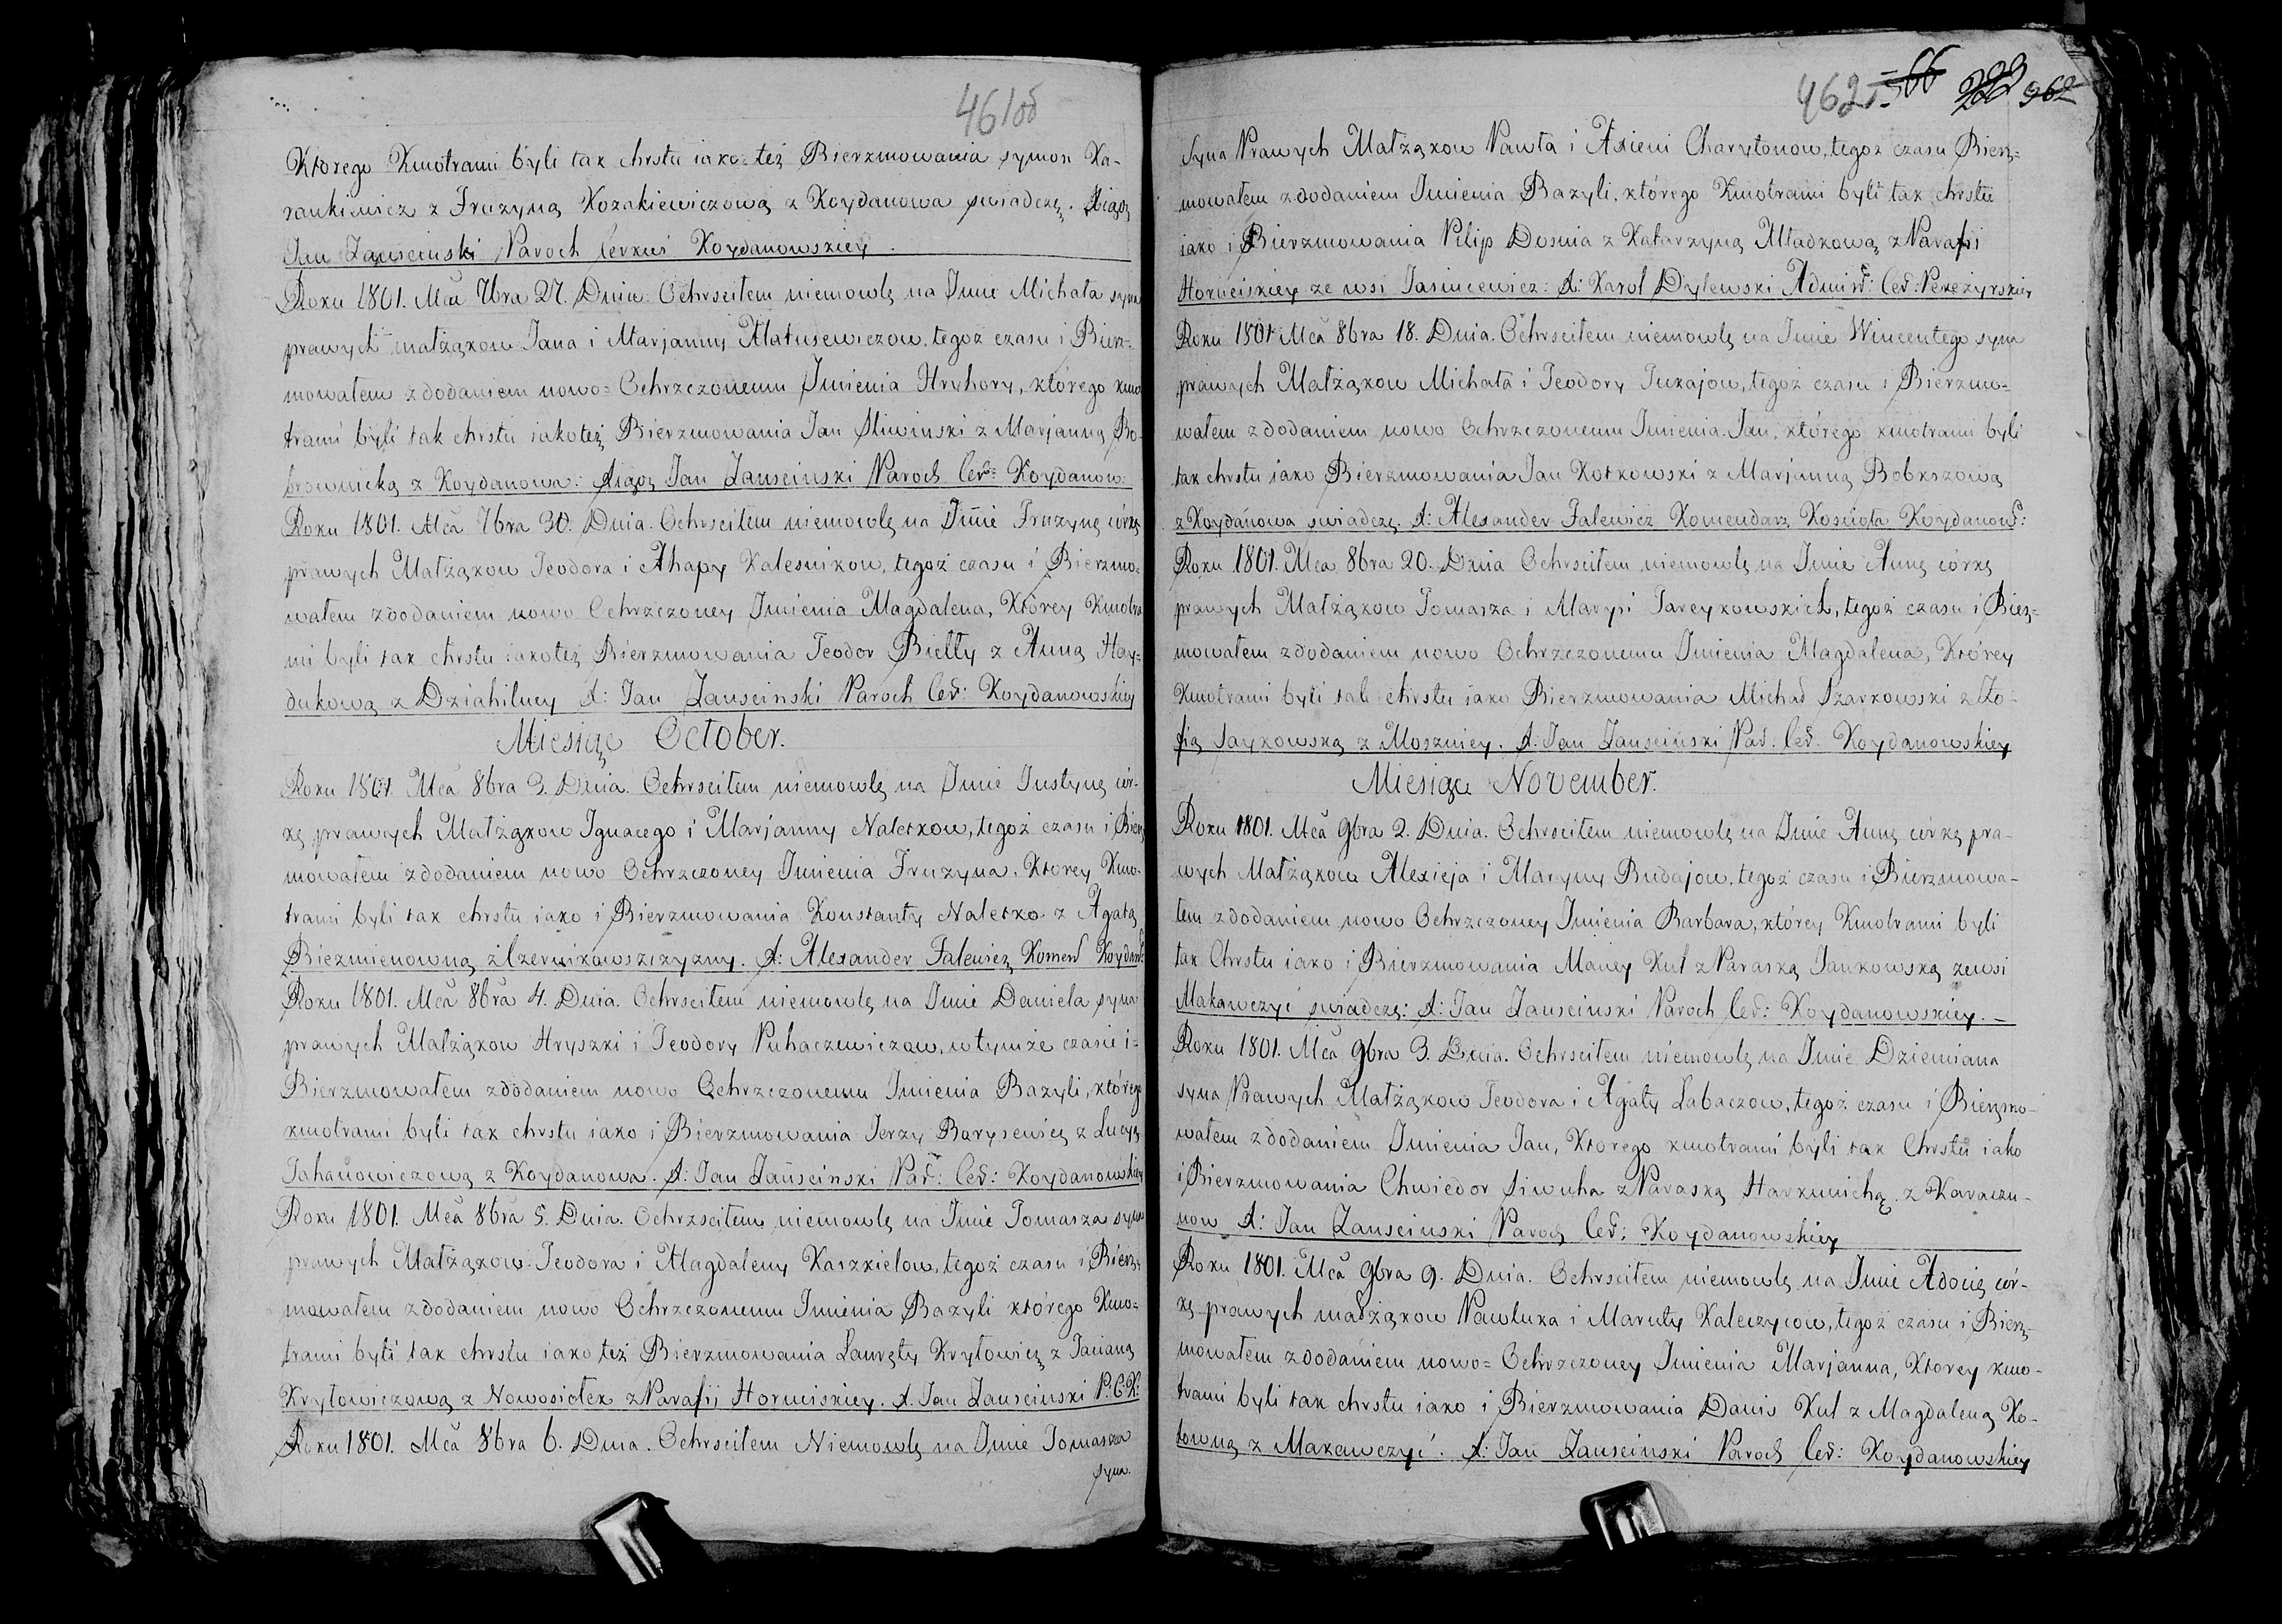 461об
Którego Kmotrami byli tak chrstu iako też Bierzmowania Symon Ka-
rankiewicz z Fruzyną Kozakiewiczową z Koydanowa swiadczę. Xiądz
Jan Zausciński Paroch Cerkwi Koydanowskiey
Roku 1801. Mca 7bra 27. Dnia. Ochrsciłem niemowlę na Jmie Michała syna
prawych małżąkow Jana i Marjanny Matusewiczow, tegoż czasu i Bierz-
mowałem z dodaniem nowo=Ochrzczonemu Jmienia Hryhory, którego kmo
trami byli tak chrstu iakoteż Bierzmowania Jan Sliwinski z Marjanną Bo-
brownicką z Koydanowa: Xiądz Jan Zauscinski Paroch Cer: Koydanow:
Roku 1801. Mca 7bra 30. Dnia. Ochrsciłem niemowlę na Jmie Fruzynę córkę
prawych Małżąkow Teodora i Ahapy Kalesnikow, tegoż czasu i Bierzmo=
wałem z dodaniem nowo Ochrzczoney Jmienia Magdalena, Którey Kmotra
mi byli tak chrstu iakoteż Bierzmowania Teodor Biełły z Anną Hay=
dukową z Dziahilney X: Jan Zauscinski Paroch Cer: Koydanowskiey
Miesiąc October.
Roku 1801. Mca 8bra 3. Dnia. Ochrsciłem niemowlę na Jmie Justynę cór-
kę prawych Małżąkow Ignacego i Marjanny Naletkow, tegoż czasu i Bierz
mowałem z dodaniem nowo Ochrzczoney Jmienia Fruzyna, Którey Kmo-
trami byli tak chrstu iako i Bierzmowania Konstanty Naletko z Agatą
Biezmienowną z Czernikowszczyzny. X: Alexander Falewicz Komend Koydan
Roku 1801. Mca 8bra 4. Dnia. Ochrsciłem niemowlę na Jmie Daniela syna
prawych Małżąkow Hryszki i Teodory Puhaczewiczow, w tymże czasie i=
Bierzmowałem z dodaniem nowo Ochrzczonemu Jmienia Bazyli, którego
kmotrami byli tak chrstu iako i Bierzmowania Jerzy Barysewicz z Lucyą
Jahanowiczową z Koydanowa. X: Jan Zauscinski Par: Cer: Koydanowskiey
Roku 1801. Mca 8bra 5. Dnia. Ochrzsciłem niemowlę na Jmie Tomasza syna
prawych Małżąkow Teodora i Magdaleny Kaszkielow, tegoż czasu i Bierz-
mowałem z dodaniem nowo Ochrzczonemu Jmienia Bazyli którego Kmo=
trami byli tak chrstu iako też Bierzmowania Lauręty Kryłowicz z Tacianą
Kryłowiczową z Nowosiołek z Parafij Horuiskiey. X. Jan Zauscinski P.C.K.
Roku 1801. Mca 8bra 6. Dnia. Ochrsciłem Niemowlę na Jmie Tomasza
syna.
462 562
Syna Prawych Małżąkow Pawła i Axieni Charytonow, tegoż czasu Bierz=
mowałem z dodaniem Jmienia Bazyli, którego Kmotrami byli tak chrstu
iako i Bierzmowania Pilip Dosnia z Katarzyną Mładkową z Parafii
Horuciskiey ze wsi Jasiucewicz: X: Karol Dylewski Admin: Cer: Perezyrskiey
Roku 1801 Mca 8bra 18. Dnia. Ochrsciłem niemowlę na Jmie Wincentego syna
prawych Małżąkow Michała i Teodory Tukajow, tegoż czasu i Bierzmo-
wałem z dodaniem nowo Ochrzczonemu Jmienia Jan, którego kmotrami byli
tak chrstu iako Bierzmowania Jan Kotkowski z Marjanną Bobkszową
z Koydanowa swiadczę. X: Alexander Falewicz Komendarz Kościoła Koydanow:
Roku 1801. Mca 8bra 20. Dnia Ochrsciłem niemowlę na Jmie Annę córkę
prawych Małżąkow Tomasza i Maryi Tareykowskich, tegoż czasu i Bierz=
mowałem z dodaniem nowo Ochrzczonemu Jmienia Magdalena, Którey
Kmotrami byli tak chrstu iako Bierzmowania Michał Szarkowski z Zo-
fią Saykowską z Moszniey. X. Jan Zauscinski Par: Cer. Koydanowskiey
Miesiąc November.
Roku 1801. Mca 9bra 2. Dnia. Ochrsciłem niemowlę na Jmie Annę córkę pra-
wych Małżąkow Alexieja i Maryny Budajow, tegoż czasu i Bierzmowa-
łem z dodaniem nowo Ochrzczoney Jmienia Barbara, którey Kmotrami byli
tak Chrstu iako i Bierzmowania Maciey Kul z Paraską Jankowską ze wsi
Makawczyć swiadczę: X: Jan Zauscinski Paroch Cer: Koydanowskiey. -
Roku 1801. Mca 9bra 3. Dnia. Ochrsciłem niemowlę na Jmie Dziemiana
syna Prawych Małżąkow Teodora i Agaty Łabaczow, tegoż czasu i Bierzmo-
wałem z dodaniem Jmienia Jan, Którego kmotrami byli tak Chrstu iako
i Bierzmowania Chwiedor Siwuha z Paraską Harkunichą z Karaczu-
now X: Jan Zauscinski Paroch Cer: Koydanowskiey
Roku 1801. Mca 9bra 9. Dnia. Ochrsciłem niemowlę na Jmie Adocię cór-
kę prawych małżąkow Pawluka i Maruty Kaleczycow, tegoż czasu i Bierz-
mowałem z dodaniem nowo=Ochrzczoney Jmienia Marjanna, Którey kmo-
trami byli tak chrstu iako i Bierzmowania Danis Kul z Magdaleną Ko-
towną z Makawczyć. X: Jan Zauscinski Paroch Cer: Koydanowskiey